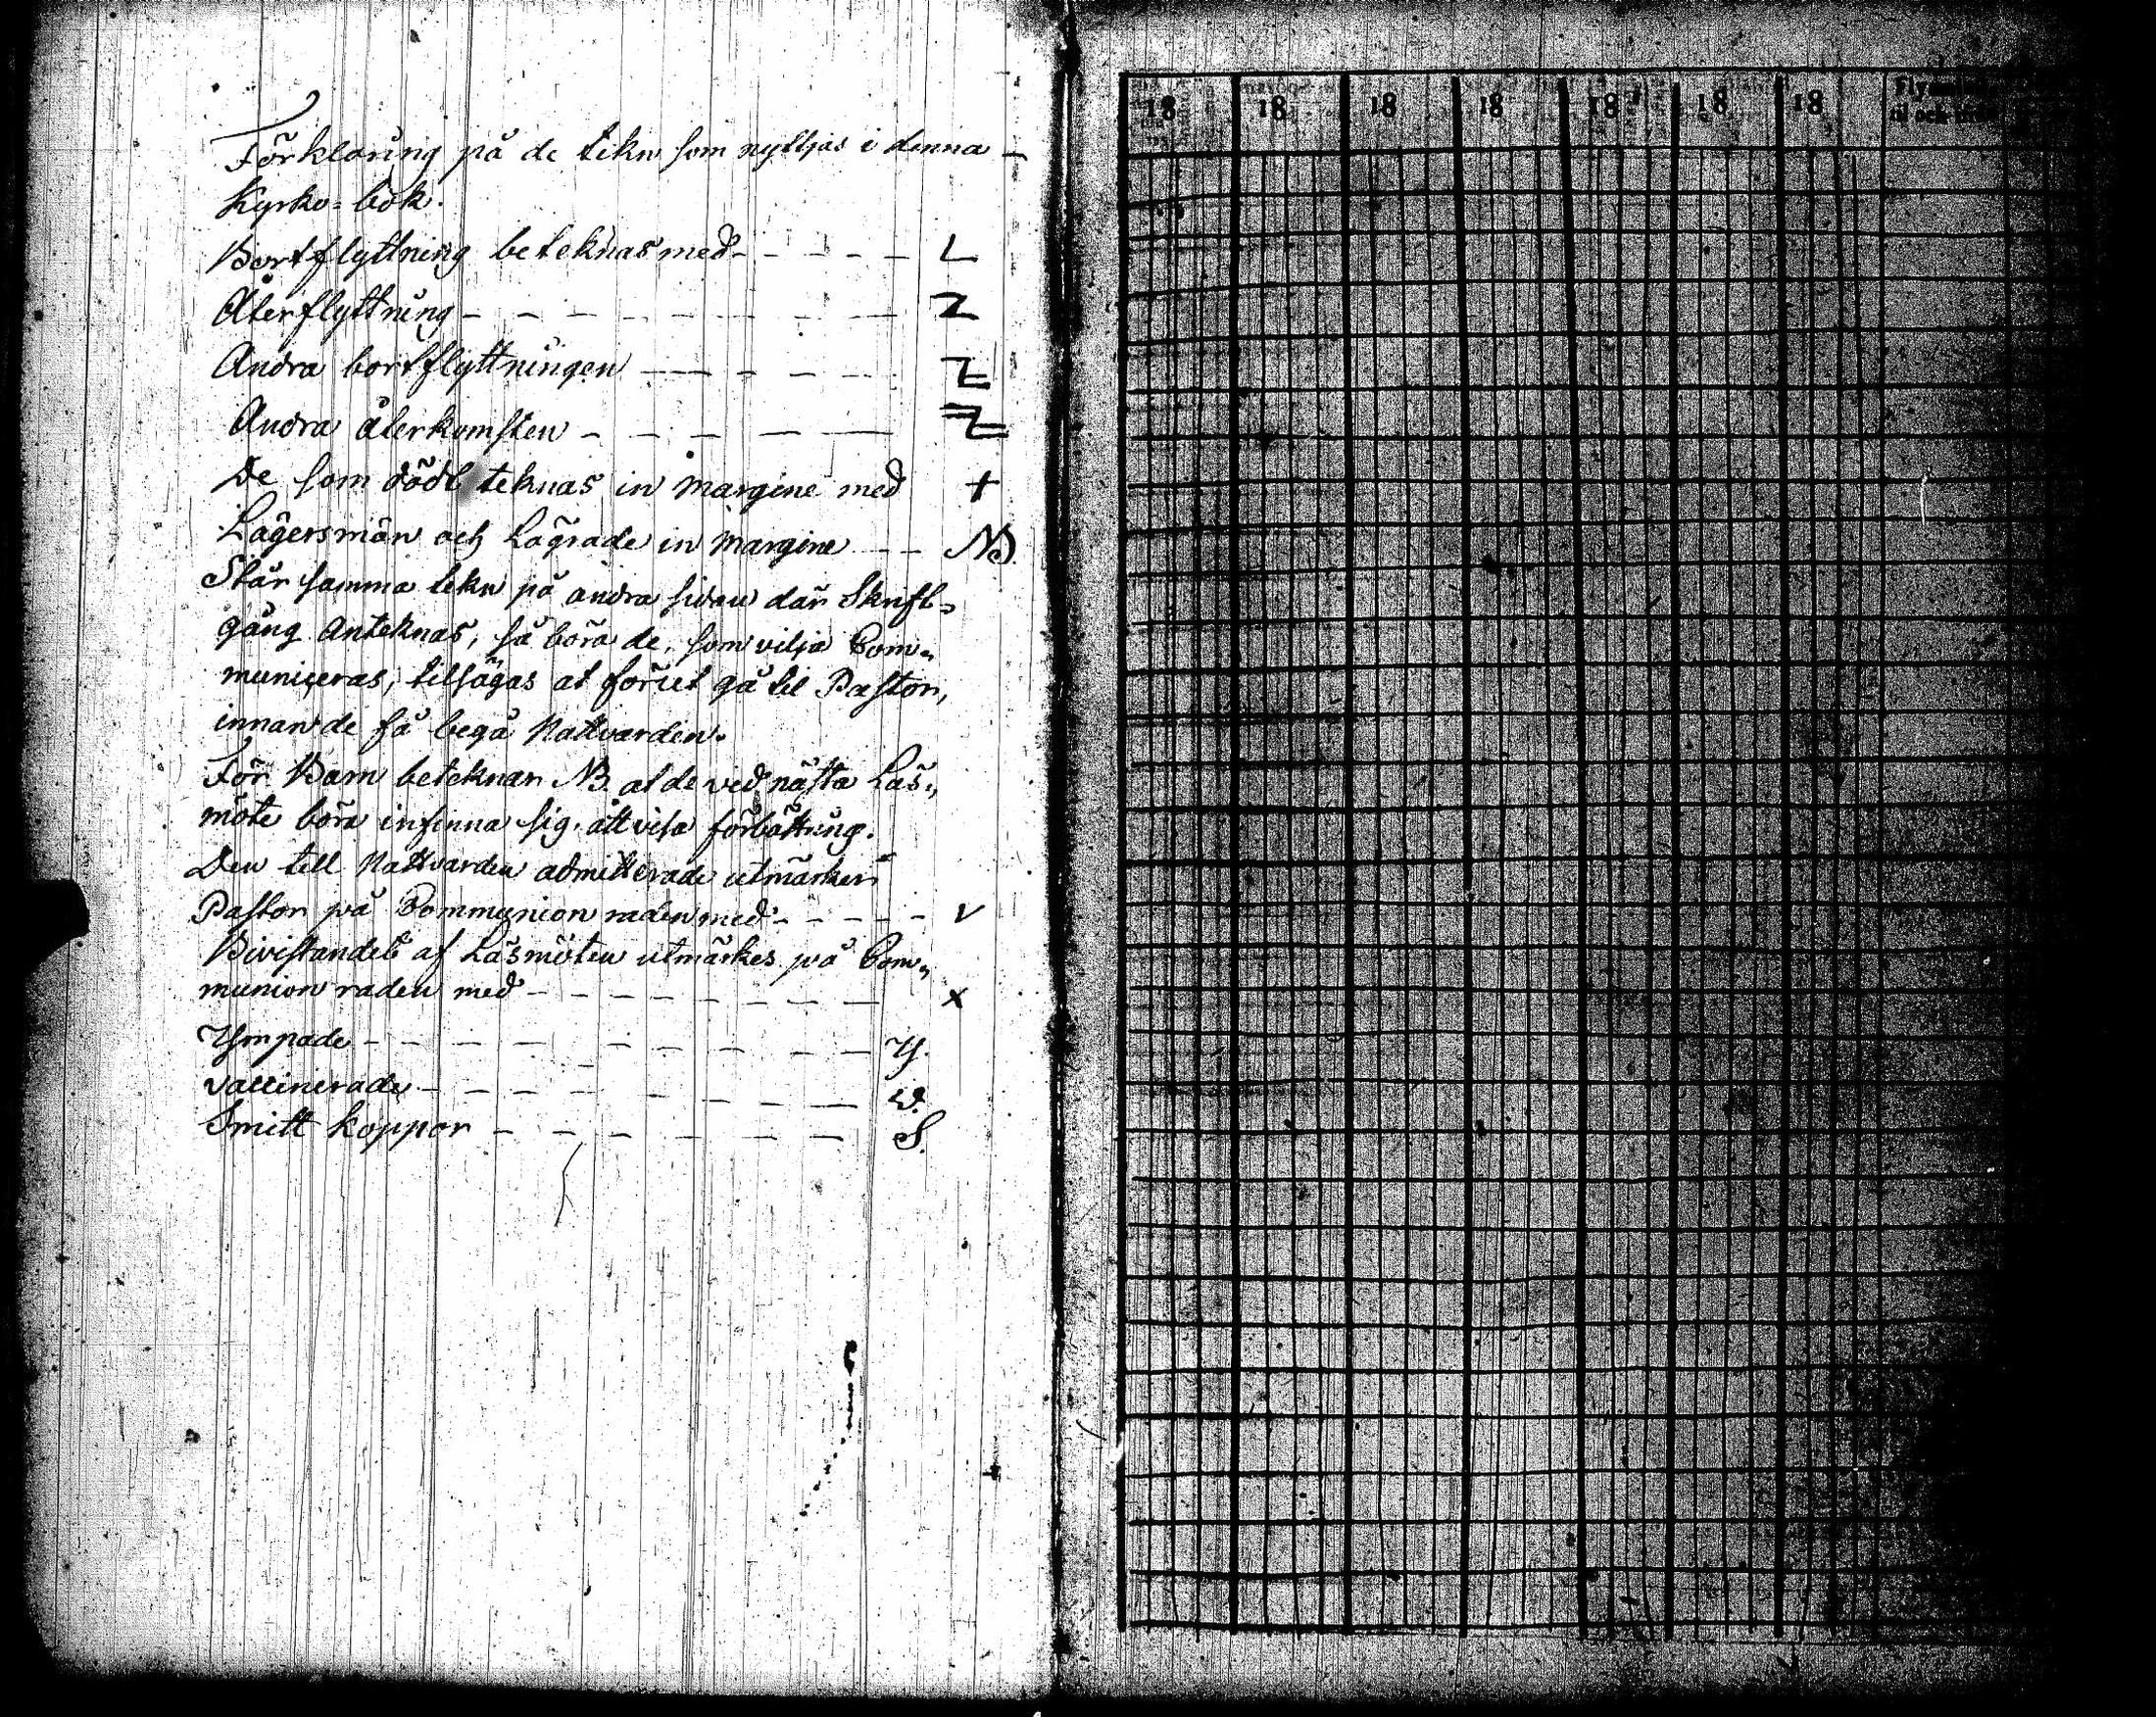 Förklaring på de tekn som nyttjas i denna
Kyrko=bok.
Bortflyttning beteknas med - - - - - L
Återflyttning - - - - - - - - Z
Andra bortflyttningen - - - - -
Andra återkomsten - - - - -
De som dödt teknas in margine med +
Lägersmän och Lägrade in margine - - NB.
Står samma tekn på andra sidan där Skrift=
gång Anteknas, så böra de, som vilja Com„
municeras, tilsägas at föriet gå til Pastor,
innan de få begå Nattvarden.
För Barn beteknar NB at de vid nästa Läs„
möte böra infinna sig, att visa förbättring.
Den till Nattvarden admitterade utmärker
Pastor på Communion raden med - - - - - v
Bivistandet af Läsmöten utmärkes på Com„
munion raden med - - - - - - - - x
Ympade - - - - - - - - - Y.
Vaccinerade - - - - - - - - v.
Smitt koppor - - - - - - S.
18 18 18 18 18 18 18
til och